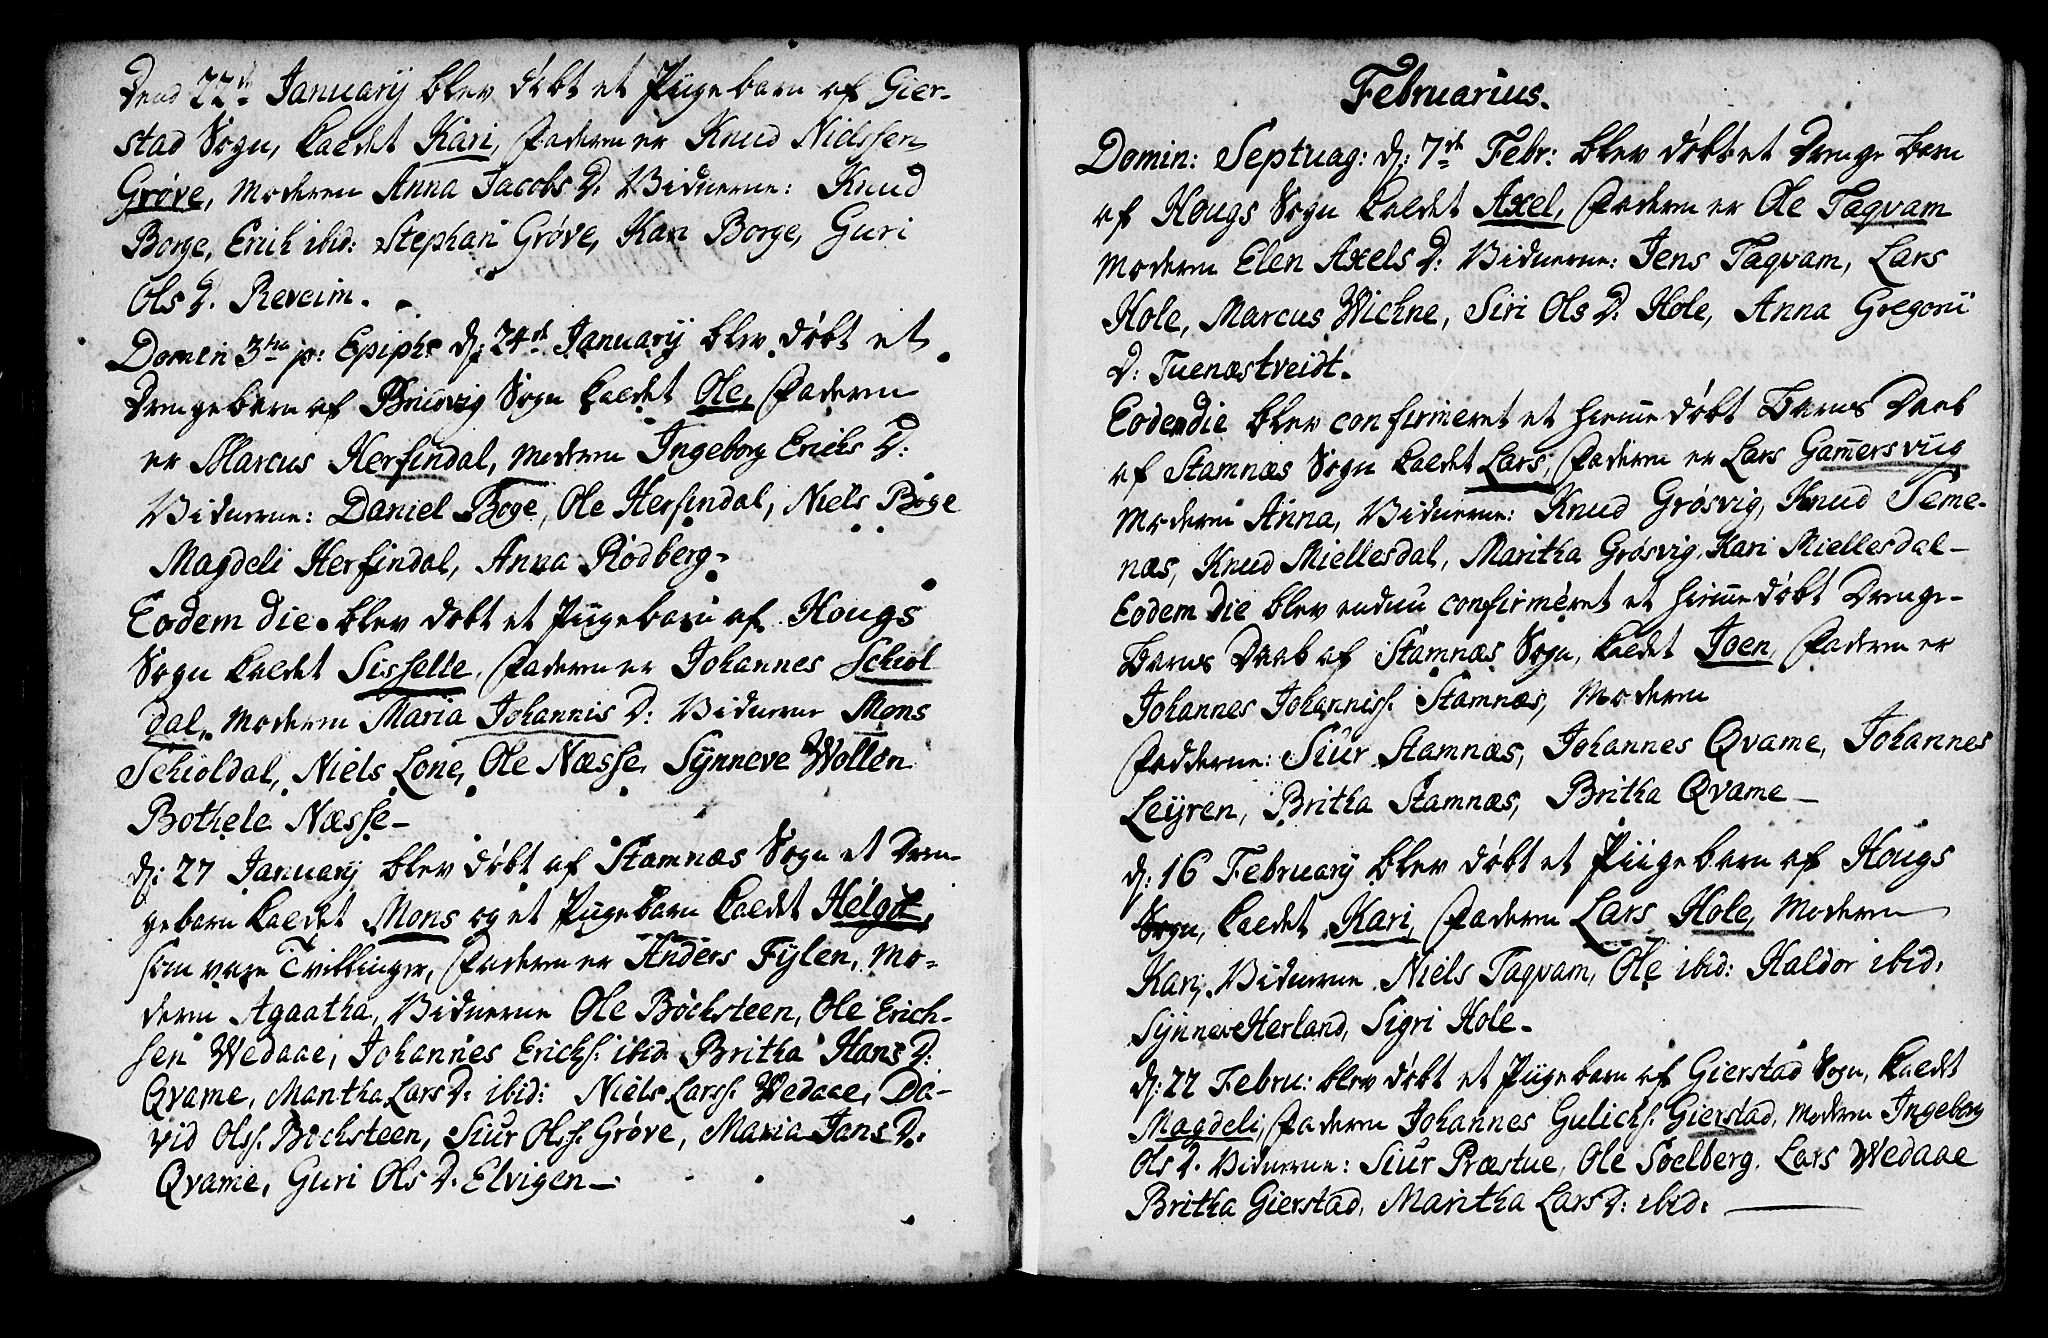 Dend 22de January blev døbt et Piigebarn af Gier-
stad Sogn, kaldet Kari, Faderen er Knud Nielssen
Grøve, Moderen Anna Jacobs D. Vidnerne: Knud
Borge, Erich ibid: Stephan Grøve, Kari Borge, Guri
Ols D. Reveim.
Domin 3tia p: Epiph: d: 24de January blev døbt et
Drengebarn af Bruvig Sogn kaldet Ole, Faderen
er Marcus Herfindal, Moderen Ingeborg Erichs D:
Vidnerne: Daniel Boge, Ole Herfindal, Niels Boge
Magdeli Herfindal, Anna Rødberg-
Eodem die blev døbt et Piigebarn af Hougs
Sogn kaldet Sisselle, Faderen er Johannes Schiol
dal, Moderen Maria Johannis D: Vidnerne Mons
Schioldal, Niels Lone, Ole Næsse, Synneve Wollen
Bothele Næsse-
d: 27 January blev døbt af Stamnæs Sogn et Dren-
gebarn kaldet Mons og et Piigebarn kaldet Helgæ,
som vare Tvillinger, Faderen er Anders Fylen, Mo-
deren Agaatha, Vidnerne Ole Bochsteen, Ole Erich-
sen Wedaae, Johannes Erichs. ibid Britha Hans D:
Qvame, Maritha Lars D: ibid: Niels Larss. Wedaae, Da-
vid Olss. Bochsteen, Siur Olss. Grøve, Maria Jans D:
Qvame, Guri Ols D. Elvigen-
Februarius.
Domin: Septuag: d: 7de Febr: blev døbt et Drenge barn
af Hougs Sogn kaldet Axel, Faderen er Ole Taqvam
Moderen Elen Axels D: Vidnerne: Jens Taqvam, Lars
Hole, Marcus Wichne, Siri Ols D: Hole, Anna Gregorii
D: Tuenæstveidt.
Eodem die blev confirmeret et hiemmedøbt Barns Daab
af Stamnæs Sogn kaldet Lars, Faderen er Lars Gamersviig
Moderen Anna, Vidnerne: Knud Grøsvig, Knud Teme-
næs, Knud Miellesdal, Maritha Grøsvig, Kari Miellesdal-
Eodem die blev endnu confirmeret et hiemmedøbt Drenge-
Barns Daab af Stamnæs Sogn, kaldet Joen, Faderen er
Johannes Johanniss. Stamnæs, Moderen
Fadderne: Siur Stamnæs, Johannes Qvame, Johannes
Leyren, Britha Stamnæs, Britha Qvame-
d: 16 February blev døbt et Piigebarn af Hougs
Sogn, kaldet Kari, Faderen Lars Hole, Moderen
Kari, Vidnerne Niels Taqvam, Ole ibid: Haldor ibid:
Synneve Herland, Sigri Hole-
d: 22 Febru: blev døbt et Piigebarn af Gierstad Sogn, kaldet
Magdeli, Faderen Johannes Gulichs. Gierstad, Moderen Ingeborg
Ols D. Vidnerne: Siur Præstue, Ole Soelberg, Lars Wedaae
Britha Gierstad, Maritha Lars D: ibid: